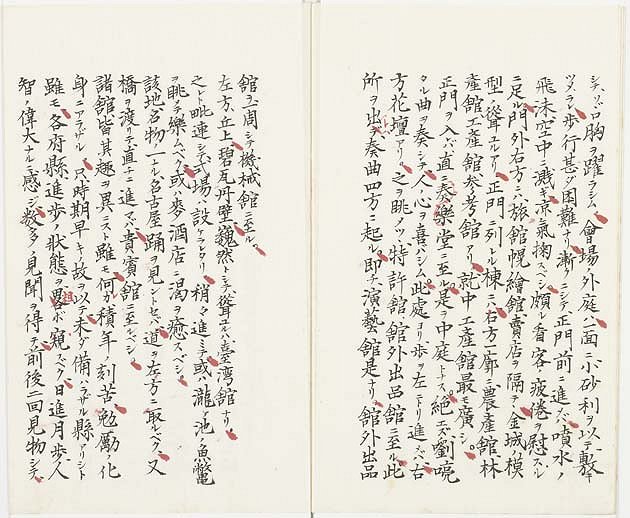 シテソゾロ胸ヲ躍ラシム會場ノ外庭一面ニ小砂利ヲ以テ敷キ
ツメラレ歩行甚ダ困難ナリ漸クニシテ正門前ニ進メバ噴水ノ
飛沫空中ニ漑キ凉氣掬スベシ頗ル看客ノ疲倦ヲ慰スル
ニ足ル門外右方ニハ旅舘幌繪舘賣店ヲ隔テ金城ノ模
型ノ聳エルアリ正門ニ列スル棟ニハ右方一廓ニ農產舘林
產舘工產舘參考舘アリ就中工產舘最モ廣シ
正門ヲ入レバ直ニ奏樂堂ニ至ル是ヲ中庭トス絶エズ劉喨
タル曲ヲ奏シテ人心ヲ喜バシム此處ヨリ歩ヲ左ニトリ進メバ右
方花壇アリ之ヲ眺メツヽ特許舘舘外出品舘ニ至ル此
所ヲ出レバ奏曲四方ニ起ル即チ演藝舘是ナリ舘外出品
舘ヲ一周シテ機械舘ニ至ル
左方丘上碧瓦丹壁巍然トシテ聳エルハ臺湾舘ナリ
之ト毗連シテ式場ハ設ケラレタリ稍々進ミテ或ハ瀧ノ池ノ魚鼈
ヲ眺メテ樂ムベク或ハ麥酒店ニ渇ヲ癒スベシ
該地名物ノ一タル名古屋踊ヲ見ントセバ道ヲ左方ニ取ルベク又
橋ヲ渡リテ直ニ進マバ貴賓舘ニ至ルベシ
諸舘皆其趣ヲ異ニスト雖モ何レカ積年ノ刻苦勉勵ノ化
身ニアラザル只時期早キノ故ヲ以テ未ダ備ハラザル縣アリシト
雖モ各府縣進歩ノ狀態ヲ畧ボ窺フベク日進月歩人
智ノ偉大ナルニ感ジ数多ノ見聞ヲ得テ前後二回見物シテ